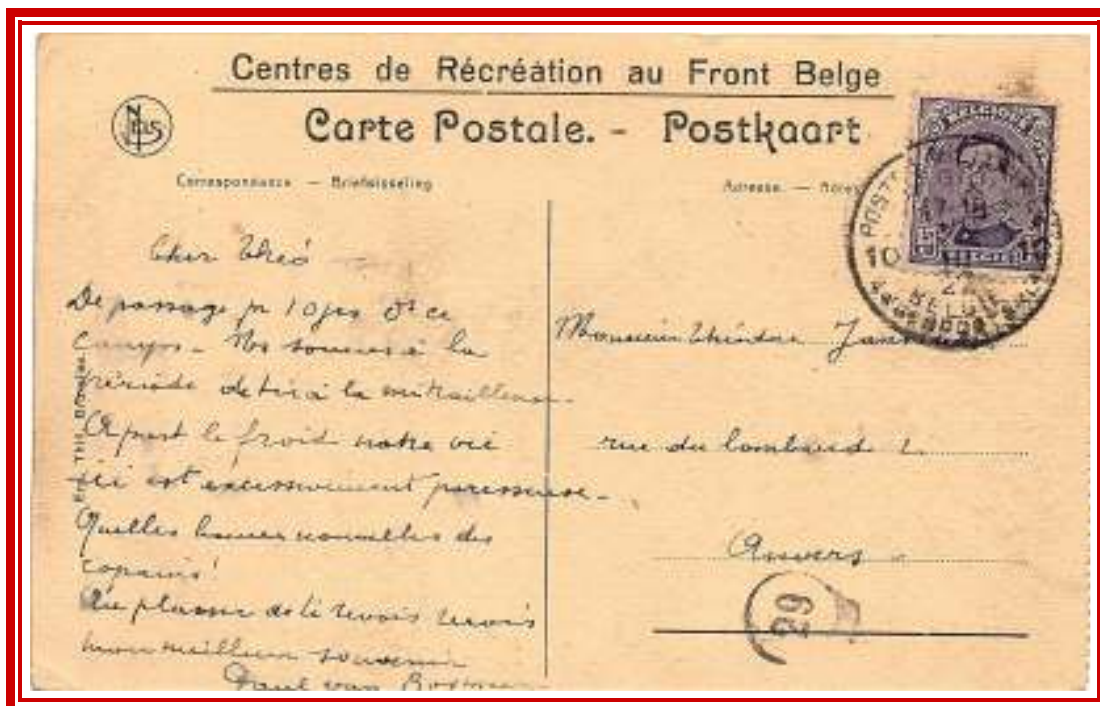 Centres de Récréation au Front Belge
Carte Postale. - Postkaart
Correspondance — Briefwisseling
Adresse. — Adres
Cher Théo
De passage pr 10 jrs ds ce
camp. Ns sommes à la
période de tir à la mitrailleuse.
A part le froid notre vie
ici est excessivement paresseuse.
Quelles bonnes nouvelles des
copains?
Au plaisir de te revoir reçois
mon meilleur souvenir
Paul van
Ern. Thill, Bruxelles.
Monsieur Théodore
rue du lombard 2
Anvers
10
BELGIE
29